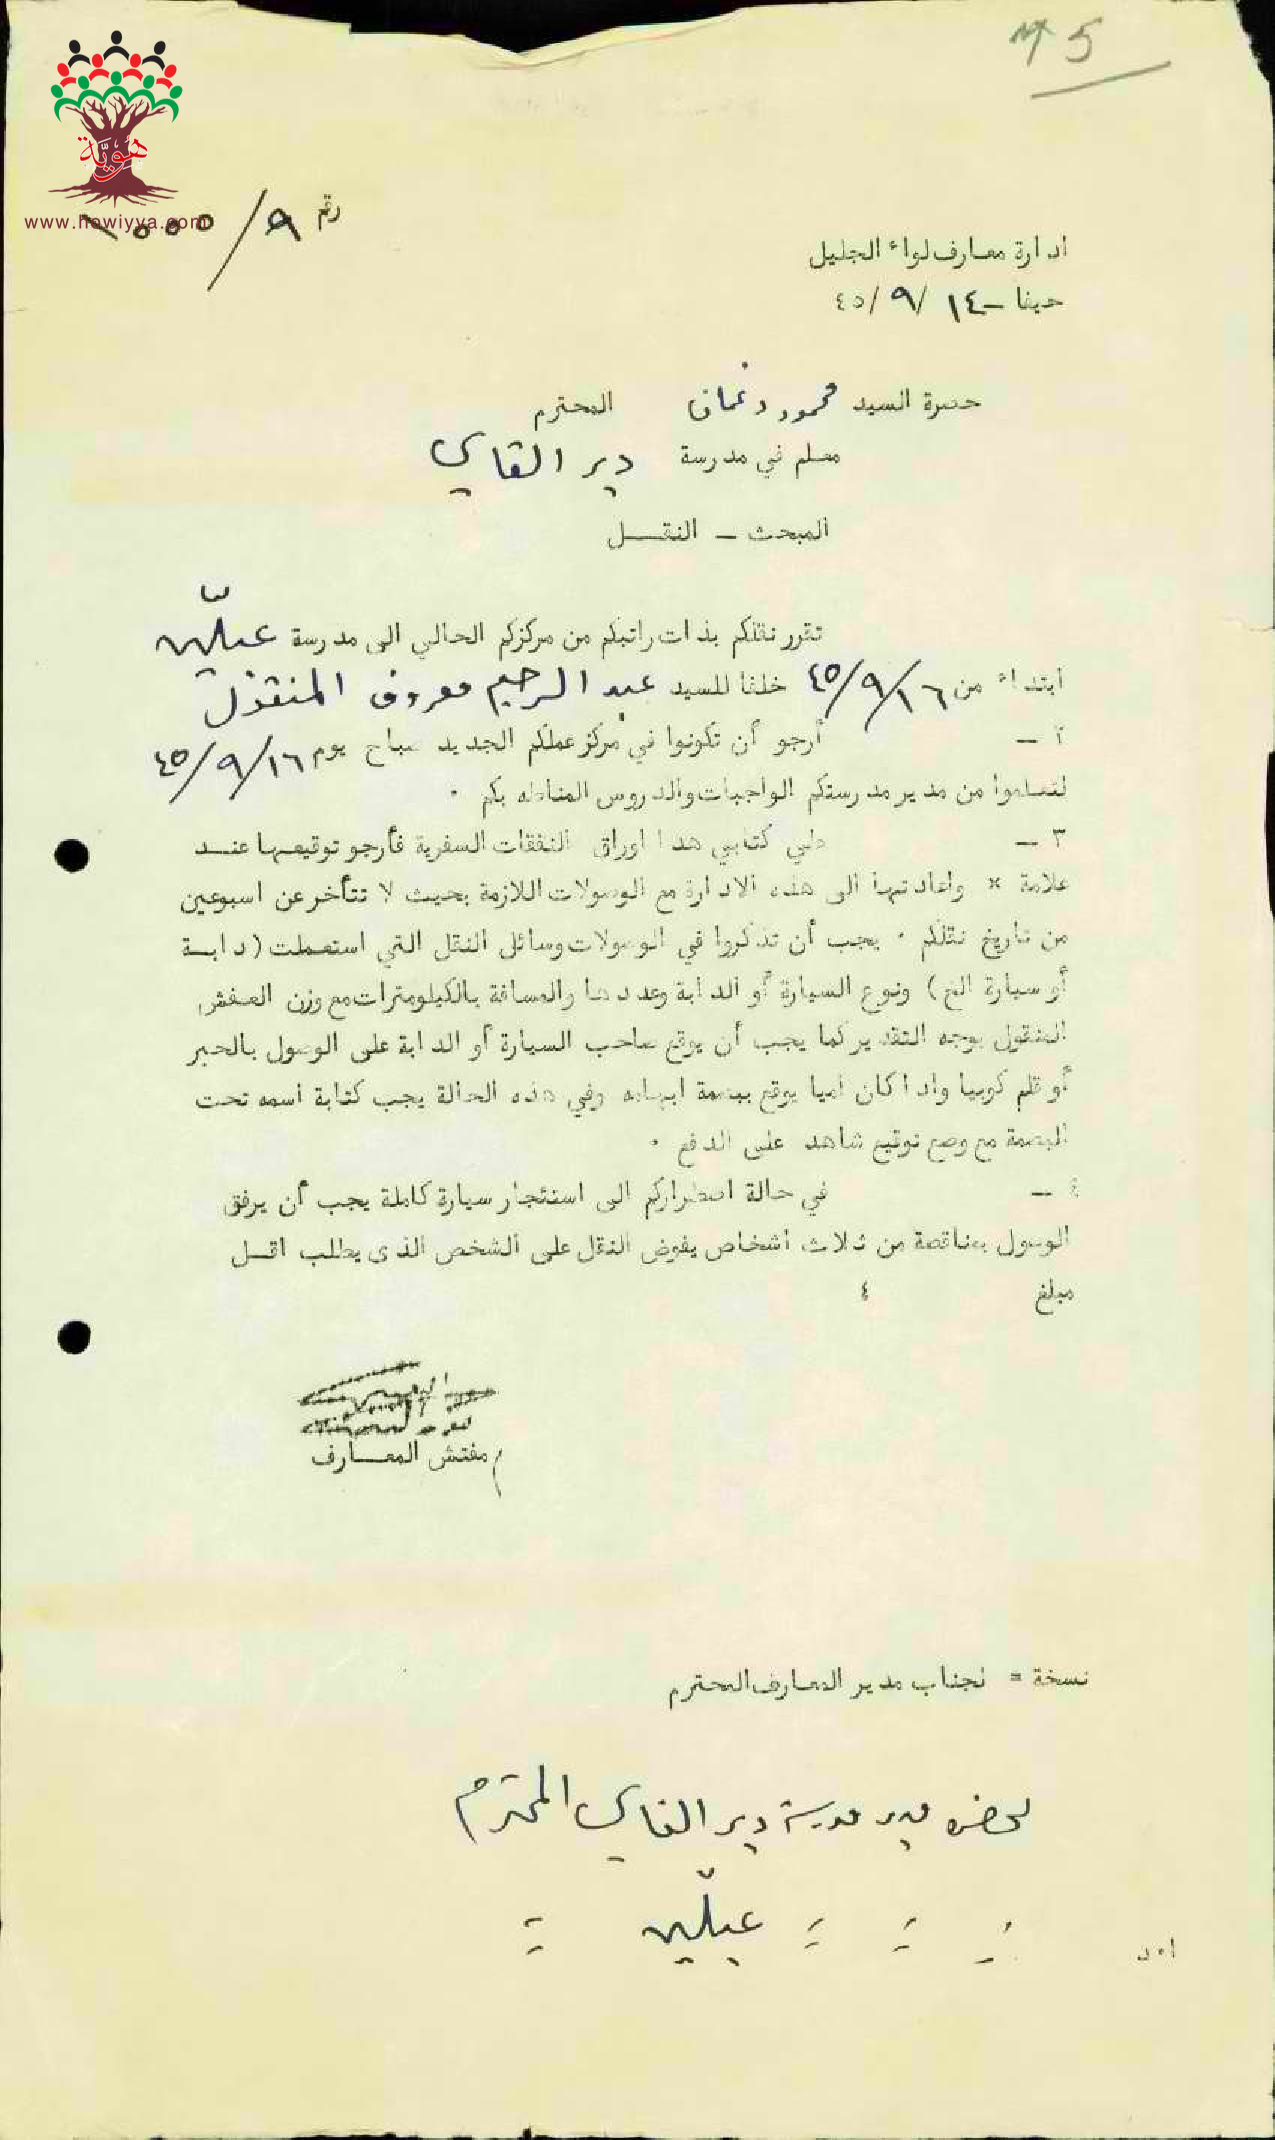 5
هوية
www.howiyya.com
رقم ٩/
ادارة معارف لواء الجليل
حيفا - ١٤/ ٩/ ٤٥
حضرة السيد محمود دغمان المحترم
معلم في مدرسة دير القاسي
المبحث - النقــل
تقرر نقلكم بذات راتبكم من مركزكم الحالي الى مدرسة عبلّين
ابتداء من ٤٥/٩/١٦ خلفا للسيد عبد الرحيم معروف المنقول
٢ - أرجو أن تكونوا في مركز عملكم الجديد صباح يوم ٤٥/٩/١٦
لتعلموا من مدير مدرستكم الواجبات والدروس المناطه بكم .
٣ - طي كتابي هذا اوراق النفقات السفرية فأرجو توقيعها عنـد
علامة × واعادتها الى هذه الادارة مع الوصولات اللازمة بحيث لا تتأخر عن اسبوعين
من تاريخ نقلكم . يجب أن تذكروا في الوصولات وسائل النقل التي استعملت (دابــة
أو سيارة الخ) ونوع السيارة أو الدابة وعددها والمسافة بالكيلومترات مع وزن العفش
المنقول بوجه التقدير كما يجب أن يوقع صاحب السيارة أو الدابة على الوصول بالحبر
أو قلم كوبيا واذا كان اميا يوقع ببصمة ابهامه وفي هذه الحالة يجب كتابة اسمه تحت
البصمة مع وضع توقيع شاهد على الدفع .
٤ - في حالة اضطراركم الى استئجار سيارة كاملة يجب أن يرفق
الوصول بمناقصة من ثلاث اشخاص يفوض النقل على الشخص الذى يطلب اقــل
مبلغ ٤
مفتش المعــارف
نسخة = لجناب مدير المعارف المحترم
لحضرة مدير مدرسة دير القاسي المحترم
= = = عبلّين =